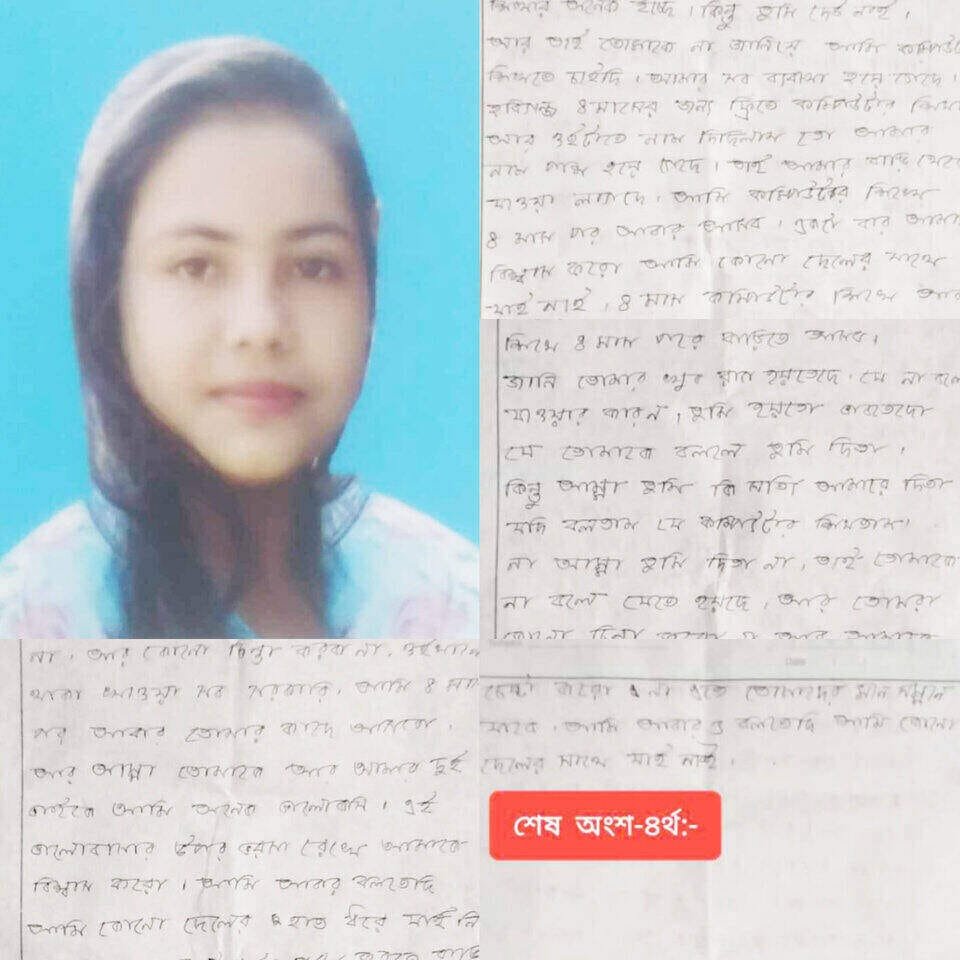 শিখার অনেক ইচ্ছে। কিন্তু তুমি দেও নাই।
আর তাই তোমাকে না জানিয়ে আমি কম্পিউটার
শিখতে চাইছি। আমার সব ব্যবস্থা হয়ে গেছে।
৪ মাসের জন্য ফ্রিতে কম্পিউটার
আর ওইটাতে নাম দিছিলাম তো আমার
নাম পাস হয়ে গেছে। তাই আমার বাড়ি থেকে
যাওয়া লাগছে। আমি কম্পিউটার শিখে
৪ মাস পর আবার আসব। একটা বার আমায়
বিশ্বাস করো আমি কোনো ছেলের সাথে
যাই নাই। ৪ মাস কম্পিউটার শিখে আর
শিখে ৪ মাস পরে বাড়িতে আসব।
জানি তোমার খুব রাগ হয়তেছে। যে না বলে
যাওয়ার কারন। তুমি হয়তো ভাবতেছো
যে তোমাকে বললে তুমি দিতা।
কিন্তু আম্মা তুমি কি সত্যি আমারে দিতা
যদি বলতাম যে কম্পিউটার শিখতাম।
না আম্মা তুমি দিতা না, তাই তোমাকে
না বলে যেতে হয়ছে, আর তোমরা
কোনো চিন্তা আর আমাকে
না। আর কোনো চিন্তা করবা না, ওইখানে
থাকা খাওয়া সব সরকারি, আমি ৪ মাস
পর আবার তোমার কাছে আসবো।
আর আম্মা তোমাকে আর আমার দুই
ভাইকে আমি অনেক ভালোবাসি। এই
ভালোবাসার উপর ভরসা রেখে আমাকে
বিশ্বাস করো। আমি আবার বলতেছি
আমি কোনো ছেলের হাত ধরে যাই নি
করো না এতে তোমাদের মান সম্মান
যাবে। আমি আবারও বলতেছি আমি কোনো
ছেলের সাথে যাই নাই।
শেষ অংশ-৪র্থ:-